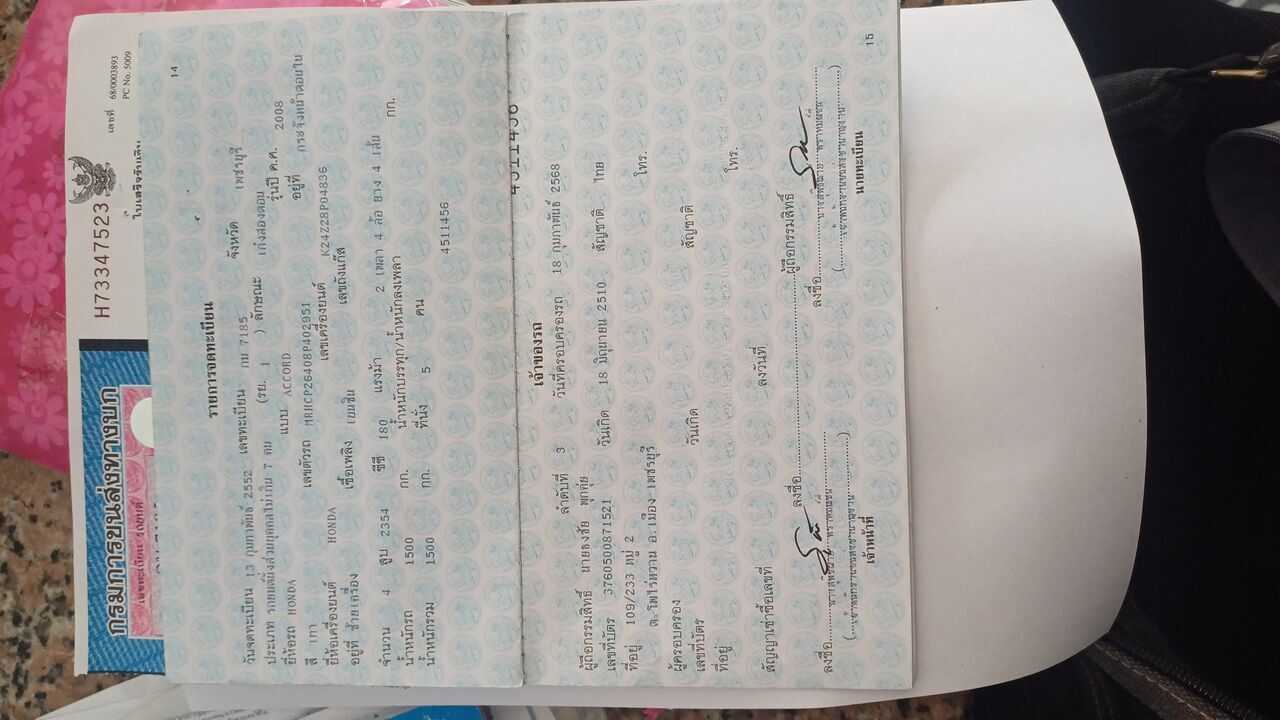 กรมการขนส่งทางบก
H73347523
เลขที่ 68/0003893
PC No. 5009
ใบเสร็จรับเงิน
เลขทะเบียน รถยนต์
14
รายการจดทะเบียน
วันจดทะเบียน 13 กุมภาพันธ์ 2552 เลขทะเบียน กม 7185 จังหวัด เพชรบุรี
ประเภท รถยนต์นั่งส่วนบุคคลไม่เกิน 7 คน (รย. 1 ) ลักษณะ เก๋งสองตอน
ยี่ห้อรถ HONDA แบบ ACCORD รุ่นปี ค.ศ. 2008
สี เทา เลขตัวรถ MRHCP26408P402951 อยู่ที่ กระจังหน้าตอนใน
ยี่ห้อเครื่องยนต์ HONDA เลขเครื่องยนต์ K24Z28P04836
อยู่ที่ ซ้ายเครื่อง เชื้อเพลิง เบนซิน เลขถังแก๊ส
จำนวน 4 สูบ 2354 ซีซี 180 แรงม้า 2 เพลา 4 ล้อ ยาง 4 เส้น
น้ำหนักรถ 1500 กก. น้ำหนักบรรทุก/น้ำหนักลงเพลา กก.
น้ำหนักรวม 1500 กก. ที่นั่ง 5 คน
4511456
4511456
เจ้าของรถ
ผู้ถือกรรมสิทธิ์ นายธงชัย พุกคุ่ย ลำดับที่ 3 วันที่ครอบครองรถ 18 กุมภาพันธ์ 2568
เลขที่บัตร 3760500871521 วันเกิด 18 มิถุนายน 2510 สัญชาติ ไทย
ที่อยู่ 109/233 หมู่ 2 โทร.
ต.โพไร่หวาน อ.เมือง เพชรบุรี
ผู้ครอบครอง
เลขที่บัตร วันเกิด สัญชาติ
ที่อยู่ โทร.
สัญญาเช่าซื้อเลขที่ ลงวันที่
ลงชื่อ ผู้ถือกรรมสิทธิ์
ลงชื่อ ลงชื่อ
เจ้าหน้าที่ นายทะเบียน
15